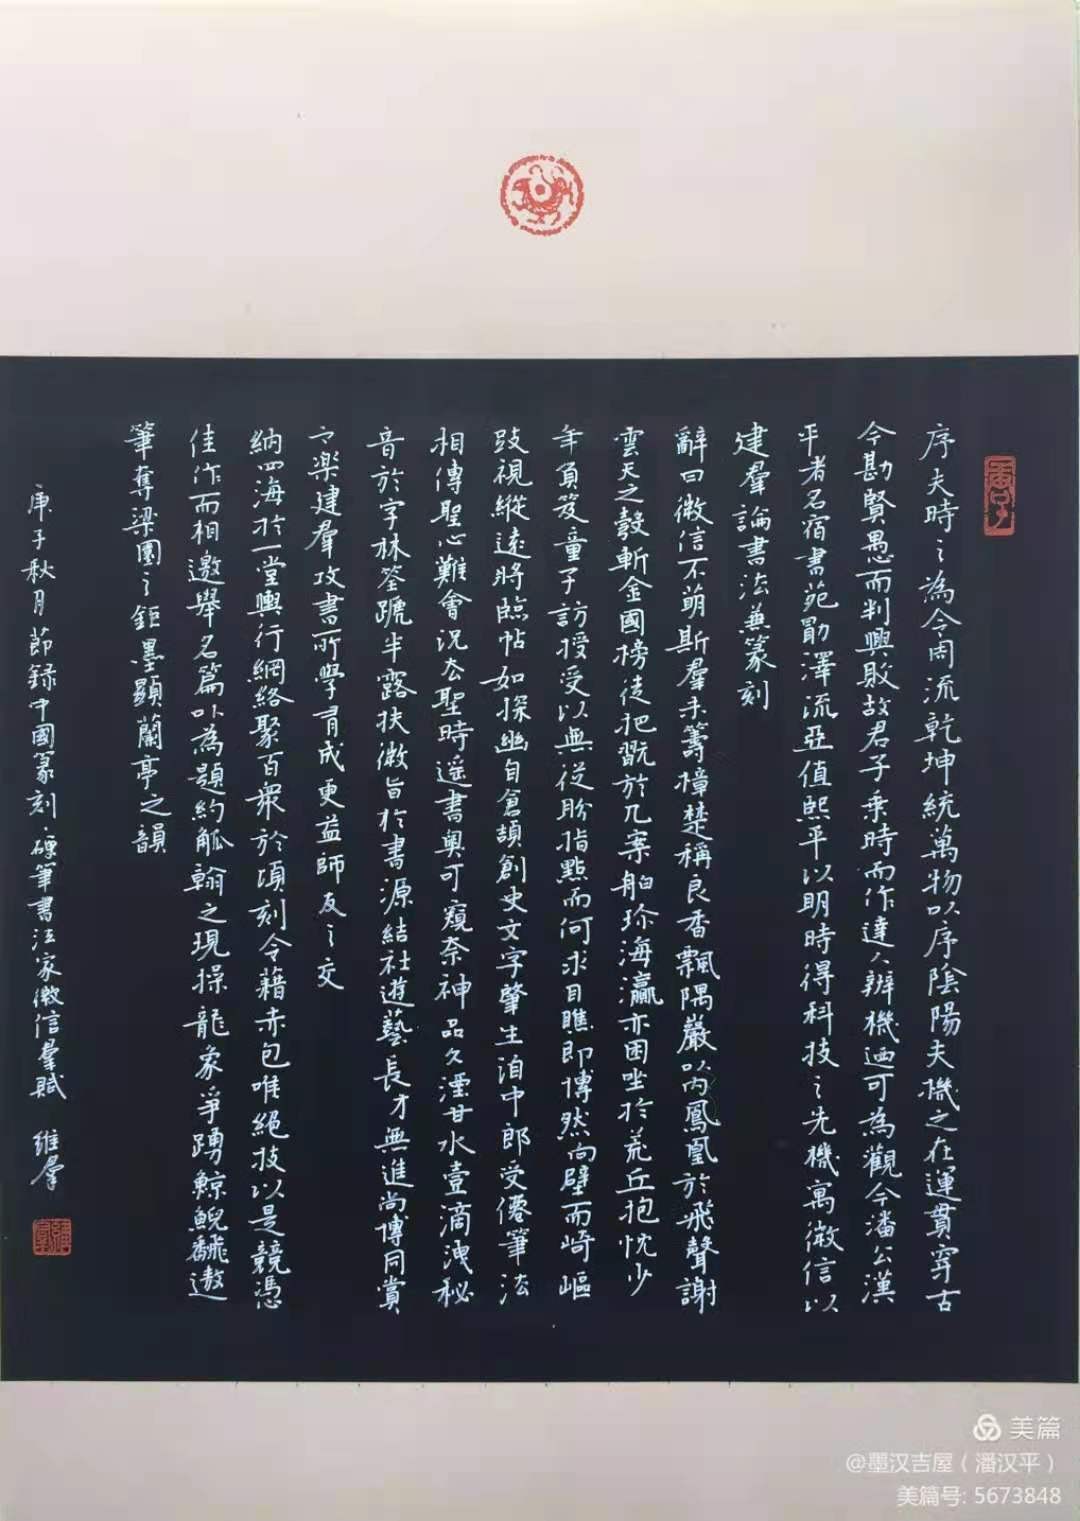 庚子
序夫時之為令周流乾坤統萬物以序陰陽夫機之在運貫穿古
今勘賢愚而判興敗故君子乘時而作達人辦機迺可為觀今潘公漢
平者名宿書苑勛澤流亞值熙平以明時得科技之先機寓微信以
建羣論書法兼篆刻
辭曰微信不萌斯羣未籌樟楚稱良香飄隅巖以丙鳳凰於飛聲謝
雲天之斬金國榜徒把翫於几案舶珍海瀛亦困坐於荒丘抱忱少
年負笈童子訪授受以無從盼指點而何求目瞧即博然向壁而崎嶇
跂視縱遠將臨帖如探幽自倉頡創史文字肇生洎中郎受僊筆法
相傳聖心難會況去聖時遥書奥可窺奈神品久湮甘水壹滴洩秘
音於字林筌蹏半露扶微旨於書源結社遊藝長才無進尚博同賞
之楽建羣攻書所學有成更益師友之交
納四海於一堂興行網絡聚百衆於頃刻令藉赤包唯絕技以是競憑
佳作而相邀舉名篇以為題約觚翰之現操龍象爭踴鯨鯢飜遨
筆奪梁園之鉅墨顯蘭亭之韻
庚子秋月節録中國篆刻·硬筆書法家微信羣賦 維羣
美篇
@墨汉吉屋（潘汉平）
美篇号: 5673848